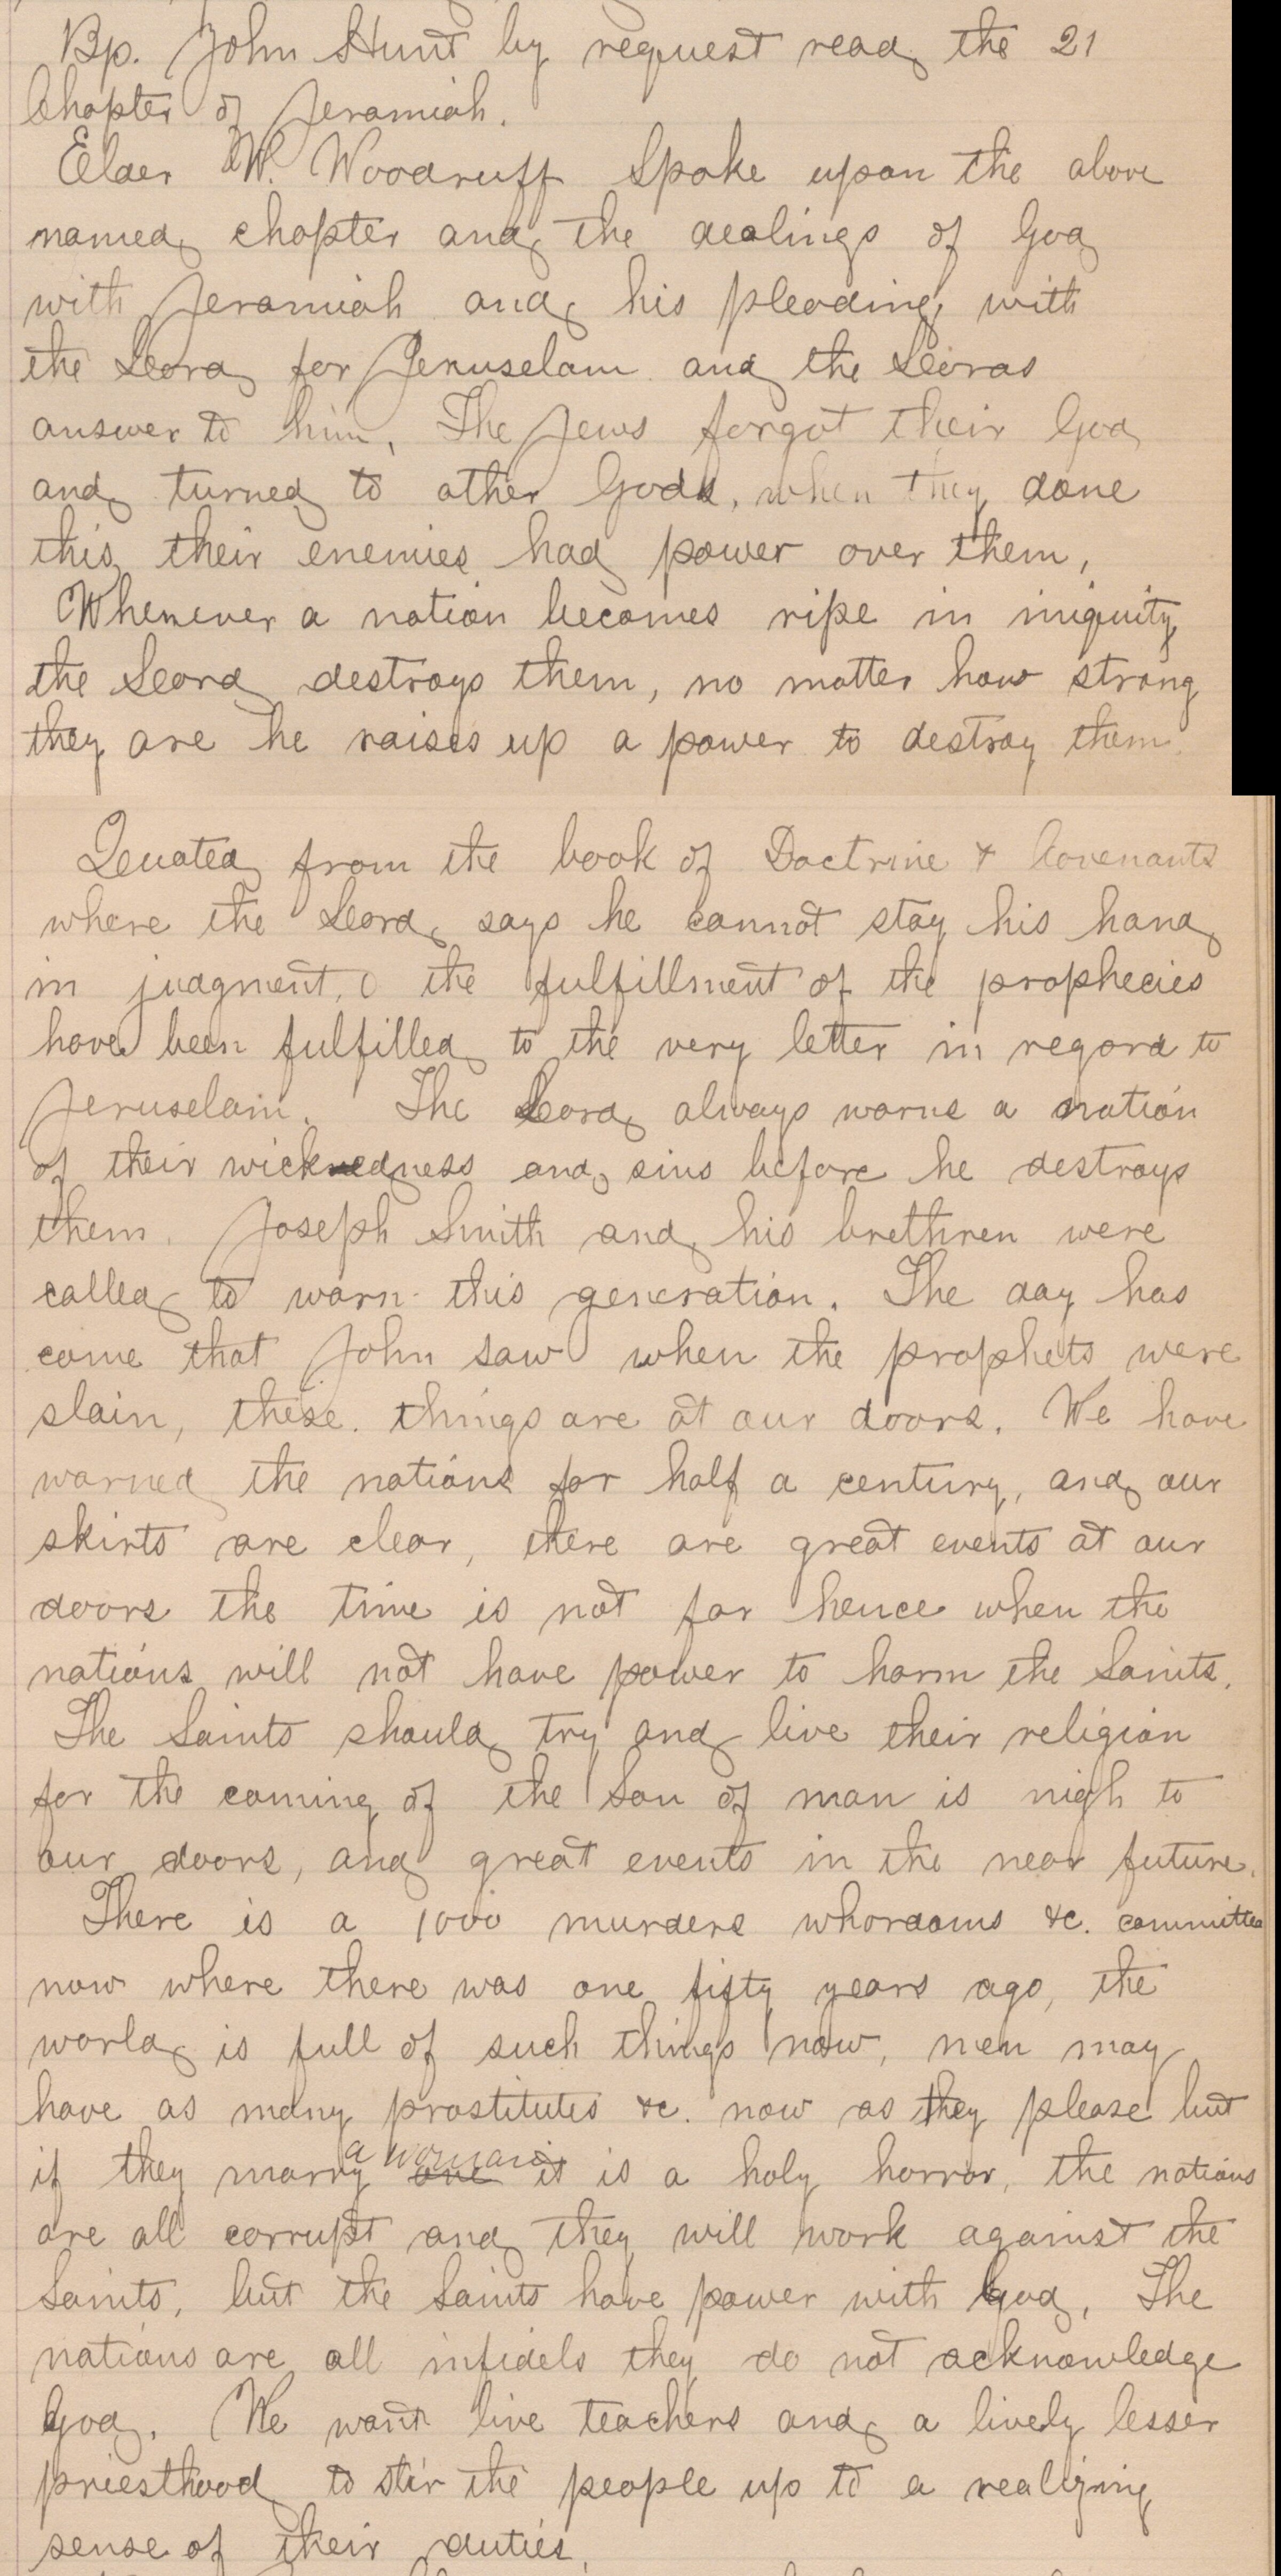 Bp. John Hunt by request read the 21
Chapter of Jeramiah.
Elder W. Woodruff Spoke upon the above
named chapter and the dealings of God
with Jeramiah and his pleading with
the Lord for Jeruselam and the Lords
answer to him, The Jews forgot their God
and turned to other Gods, when they done
this their enemies had power over them,
Whenever a nation becomes ripe in iniquity
the Lord destroys them, no matter how strong
they are he raises up a power to destroy them.
Quoted from the book of Doctrine & Covenants
where the Lord says he cannot stay his hand
in judgment, the fulfillment of the prophecies
have been fulfilled to the very letter in regard to
Jeruselam. The Lord always warns a nation
of their wickedness and sins before he destroys
them. Joseph Smith and his brethren were
called to warn this generation. The day has
come that John saw when the prophets were
slain, these. things are at our doors. We have
warned the nations for half a century, and our
skirts are clear, there are great events at our
doors the time is not far hence when the
nations will not have power to harm the Saints.
The Saints should try and live their religion
for the coming of the Son of man is nigh to
our doors, and great events in the near future.
There is a 1000 murders whordoms &c. committed
now where there was one fifty years ago, the
world is full of such things now, men may
have as many prostitutes &c. now as they please but
if they marry a woman one it is a holy horror, the nations
are all corrupt and they will work against the
Saints, but the Saints have power with God, The
nations are all infidels they do not acknowledge
God. We want live teachers and a lively lesser
priesthood to stir the people up to a realizing
sense of their duties.